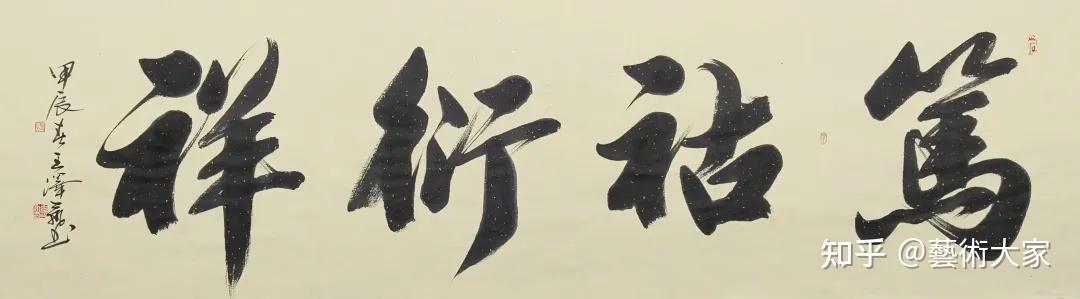 篤祜衍祥
甲辰春王澤藝書
知乎 @藝術大家